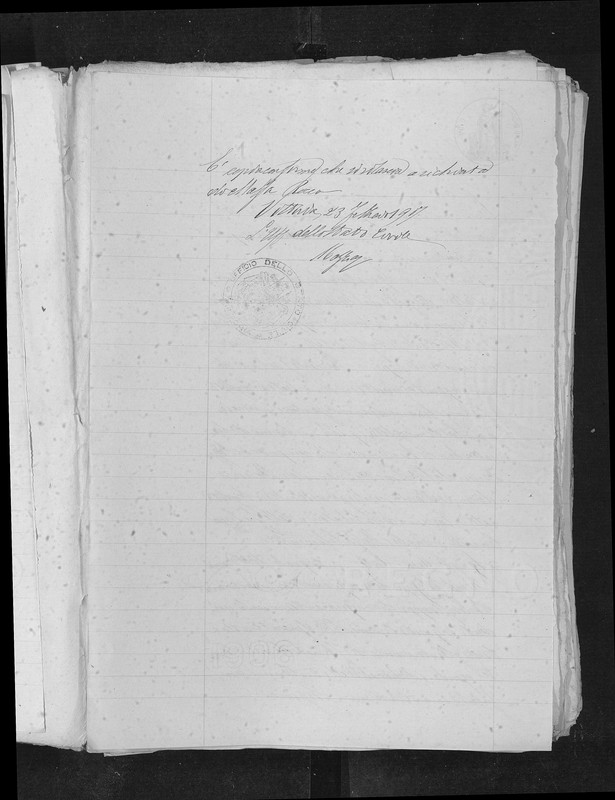 E' copia conforme che si rilascia a richiesta
di Massa Rocco
Vittoria 23 Febbraio 1917
L'Uff. dello Stato Civile
UFFICIO DELLO STATO